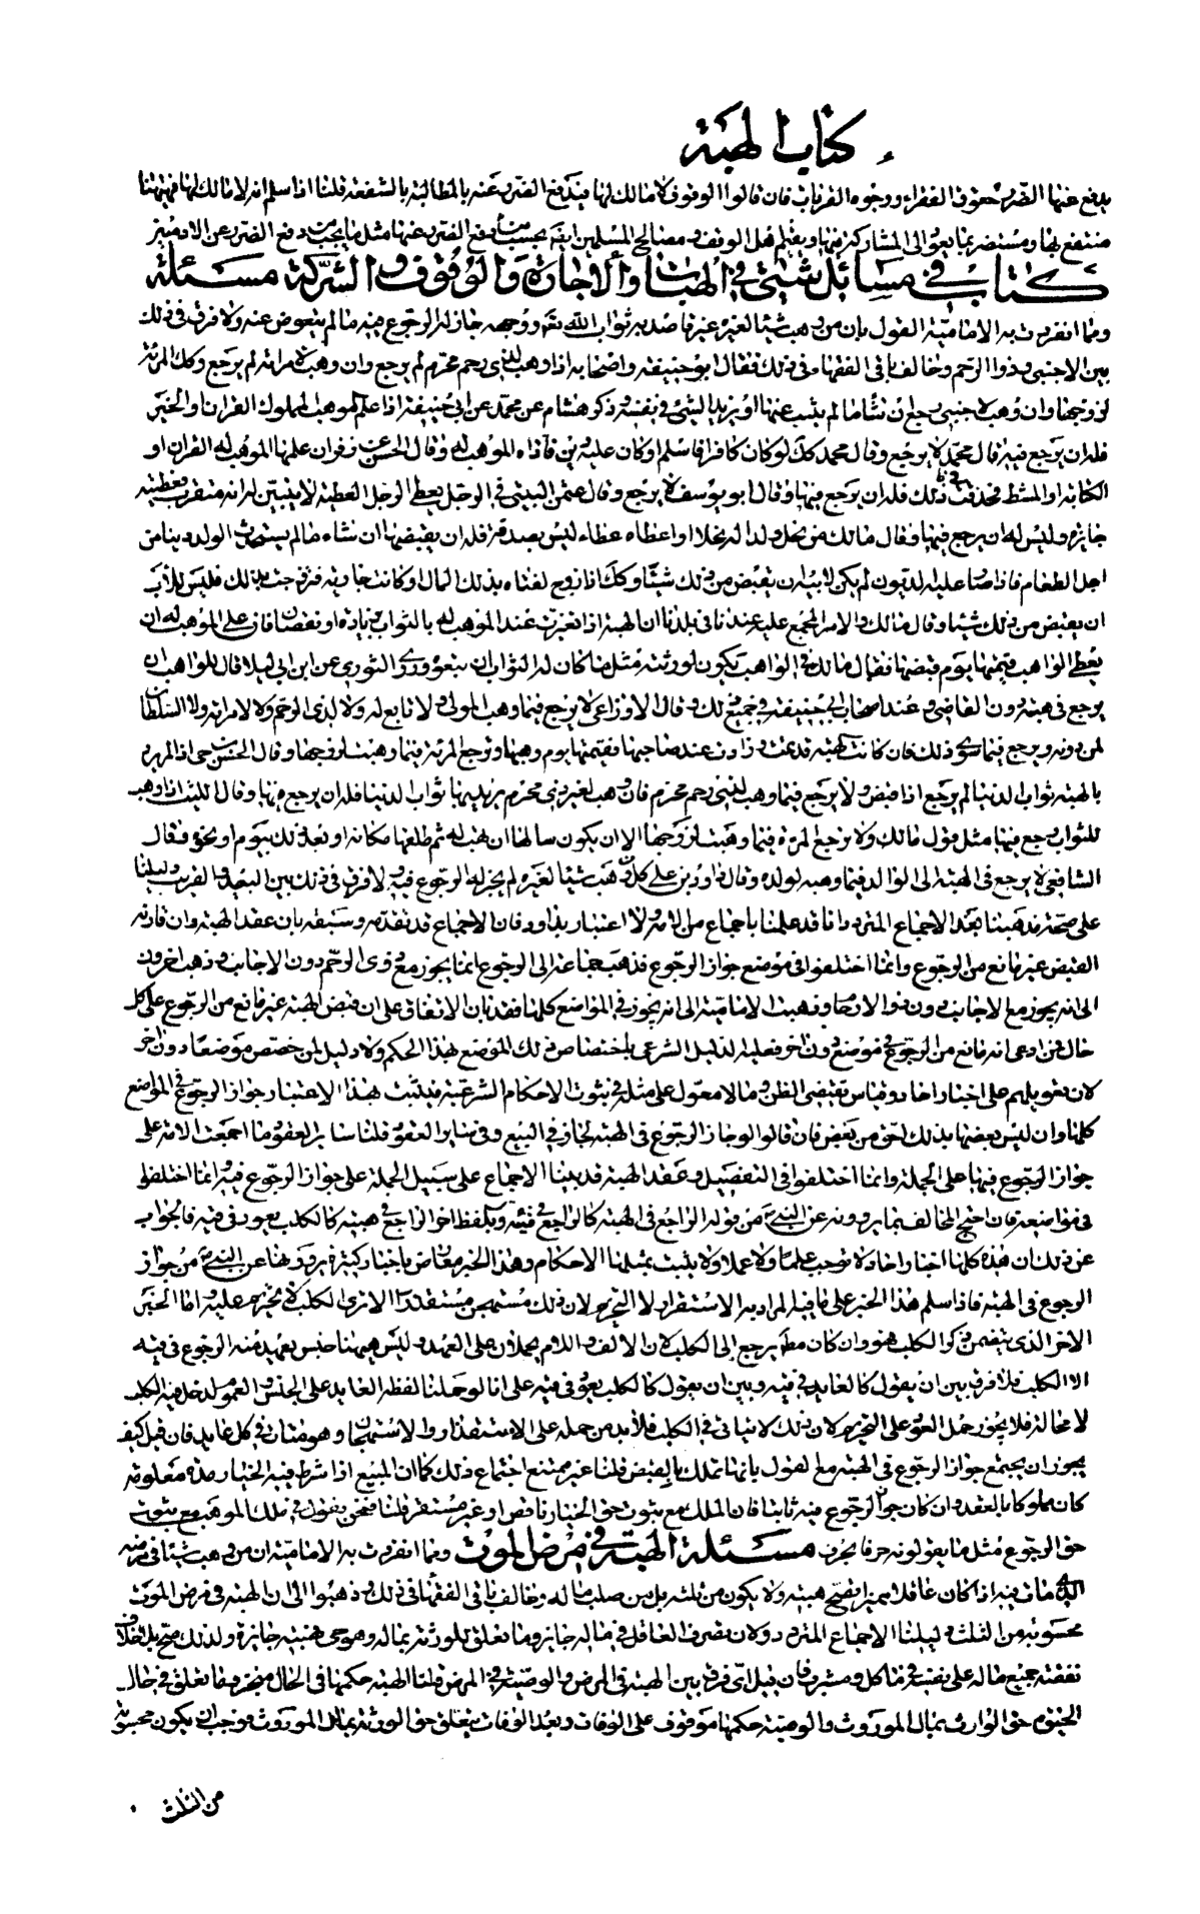 كتاب الهبة
يدفع عنها الضرر حقوق الفقراء ووجوه القربات فان قالوا الوقوف لا مالك لها فيدفع الضرر عنه بالمطالبة بالشفعة قلنا اذا سلم انه لا مالك لها فهيهنا
منتفع بها ومستضر بما يعود الى المشاركة فيها وبقلم مثل الوقف ومصالح المسلمين ايضا يجب دفع الضرر عنها مثل ما يجب دفع الضرر عن الادميين
كتاب في مسائل شتى في الهبات والاجارة والوقوف والشركة مسئلة
ومما انفردت به الامامية القول بان من وهب شيئا لغيره غير قاصد به ثواب الله تعالى ووجهه جاز له الرجوع فيه ما لم يتعوض عنه ولا فرق في ذلك
بين الاجنبي وذوا الرحم وخالف باقي الفقهاء في ذلك فقال ابو حنيفة واصحابه اذا وهب لذي رحم محرم لم يرجع وان وهب لامراته لم يرجع وكك المرئة
لزوجها وان وهب لاجنبي رجع ان شاء ما لم يثب عنها او يزيد الشئ في نفسه وذكر هشام عن محمد عن ابي حنيفة اذا علم الموهوب له المملوك القران والخبز
فله ان يرجع فيه قال محمد لا يرجع وقال محمد كك لو كان كافرا فاسلم او كان عليه دين فاداه الموهب له وقال الحسن عن زفر ان علمها الموهب له القران او
الكتابة او المشط فحذقت في ذلك فله ان يرجع فيها وقال ابو يوسف لا يرجع وقال عثمن البتي في الرجل يعطي الرجل العطية لا يتبين له انه متقرب بعطيته
جايزة وليس له ان يرجع فيها وقال مالك من نحل ولدا له نحلا او اعطاه عطاء ليس بصدقة فله ان يقبضها ان شاء ما لم يستحدث الولد دينا من
اجل الطعام فاذا صار عليه الديون لم يكن لابيه ان يقبض من ذلك شيئا وكك اذا زوج لفتاه بذلك المال او كانت جارية فزوجت بذلك فليس للاب
ان يقبض من ذلك شيئا وقال مالك والامر المجمع عليه عندنا في بلدنا ان الهبة اذا تغيرت عند الموهب له بالثواب بزيادة او نقصان فان على الموهب له ان
يعطي الواهب قيمتها يوم قبضها فقال مالك في الواهب يكون لورثته مثل ما كان له الثواب ان يتبعوه وروى الثوري عن ابن ابي ليلا قال للواهب ان
يرجع في هبته دون القاضي وعند اصحاب ابي حنيفة في جميع ذلك وقال الاوزاعي لا يرجع فيما وهب لمولى ولا تابع له ولا لذي الرحم ولا لامراته ولا السلطان
لمن دونه ويرجع فيما سوى ذلك فان كانت الهبة قد نمت وزادت عند صاحبها فقيمتها يوم وهبها وترجع المرئة فيما وهبت لزوجها وقال الحسن بن حي اذا لم يرد
بالهبة ثواب الدنيا لم يرجع اذا قبض ولا يرجع فيما وهب لذي رحم محرم فان وهب لغير ذي محرم يريد بها ثواب الدنيا فله ان يرجع فيها وقال الليث اذا وهب
للثواب رجع فيها مثل قول مالك ولا يرجع المرئة فيما وهبت لزوجها الا ان يكون سالها ان تهب له ثم طلقها مكانه او بعد ذلك بيوم او نحوه وقال
الشافعي لا يرجع في الهبة الا الوالد فيما وهبه لولده وقال داود بن علي كل من وهب شيئا لغيره لم يجز له الرجوع فيه ولا فرق في ذلك بين البعيد والقريب دليلنا
على صحة مذهبنا بعد الاجماع المتردد انا قد علمنا باجماع من الامة ولا اعتبار بداود فان الاجماع قد تقدمه وسبقه بان عقد الهبة وان قارنه
القبض غير مانع من الرجوع وانما اختلفوا في موضع جواز الرجوع فذهب جماعة الى الرجوع انما يجوز مع ذوى الرحم دون الاجانب وذهب اخرون
الى انه يجوز مع الاجانب دون ذوا الارحام وذهبت الامامية الى انه يجوز في المواضع كلها فقد بان الاتفاق على ان قبض الهبة غير مانع من الرجوع على كل
حال فمن ادعى انه مانع من الرجوع في موضع دون اخر فعليه الدليل الشرعي باختصاص ذلك الموضع بهذا الحكم ولا دليل لمن خصص موضعا دون اخر
لان تعويلهم على اخبار احاد وقياس تقتضي الظن وما لا معول على مثله في ثبوت الاحكام الشرعية فيثبت بهذا الاعتبار جواز الرجوع في المواضع
كلها وان ليس بعضها بذلك احق من بعض فان قالوا لو جاز الرجوع في الهبة لجاز في البيع وفي ساير العقود قلنا ساير العقود ما اجمعت الامة على
جواز الرجوع فيها على الجملة وانما اختلفوا في التفصيل وعقد الهبة قد بينا الاجماع على سبيل الجملة على جواز الرجوع فيه وانما اختلفوا
في مواضعه فان احتج المخالف بما يروونه عن النبي ص من قوله الراجع في الهبة كالراجع في قيئه وبلفظ اخر الراجع في هبته كالكلب يعود في قيئه فالجواب
عن ذلك ان هذه كلها اخبار احاد لا توجب علما ولا عملا ولا يثبت بمثلها الاحكام وهذا الخبر معارض باخبار كثيرة يروونها عن النبي ص من جواز
الرجوع في الهبة فاذا سلم هذا الخبر على ما فيه المراد به الاستقذار لا التحريم لان ذلك مستهجن مستقذر الا ترى الكلب لا تحريم عليه واما الخبر
الاخر الذي يتضمن ذكر الكلب فهو وان كان مطلقا يرجع الى الكلب لان الالف واللام يحملان على العهد وليس هيهنا جنس يعهد منه الرجوع في قيئه
الا الكلب فلا فرق بين ان يقول كالعايد في قيئه وبين ان يقول كالكلب يعود في قيئه على انا لو حملنا لفظة العايد على الجنس والعموم لدخل فيه الكلب
لا محالة فلا يجوز حمل العود على التحريم لان ذلك لا يتاتى في الكلب فلا بد من حمله على الاستقذار والاستهجان وهو متات في كل عايد فان قيل كيف
يجوز ان يجتمع جواز الرجوع في الهبة مع القول بانها تملك بالقبض قلنا غير ممتنع اجتماع ذلك كما ان المبيع اذا شرط فيه الخيار مدة معلومة
كان مملوكا بالعقد وان كان حق الرجوع فيه ثابتا فان الملك مع ثبوت حق الخيار ناقص او غير مستقر قلنا فنحن نقول في تملك الموهب مع ثبوت
حق الرجوع مثل ما يقولونه حرفا بحرف مسئلة الهبة في مرض الموت ومما انفردت به الامامية ان من وهب شيئا في مرضه
الذي مات فيه اذا كان عاقلا مميزا تصح هبته ولا يكون من ثلثه بل من صلب ماله وخالف باقي الفقهاء في ذلك وذهبوا الى ان الهبة في مرض الموت
محسوبة من الثلث دليلنا الاجماع المتردد ولان تصرف العاقل في ماله جايز وما تعلق للورثة بماله وهو حي فهبته جايزة ولذلك صح بلا خلاف
نفقته جميع ماله على نفسه في ماكل ومشرب فان قيل اي فرق بين الهبة في المرض والوصية في المرض قلنا الهبة حكمها في الحال منجز وما تعلق في حال
الحيوة حق الوارث بمال الموروث والوصية حكمها موقوف على الوفات وبعد الوفات يتعلق حق الورثة بمال الموروث فوجب ان يكون محسوبة
من الثلث